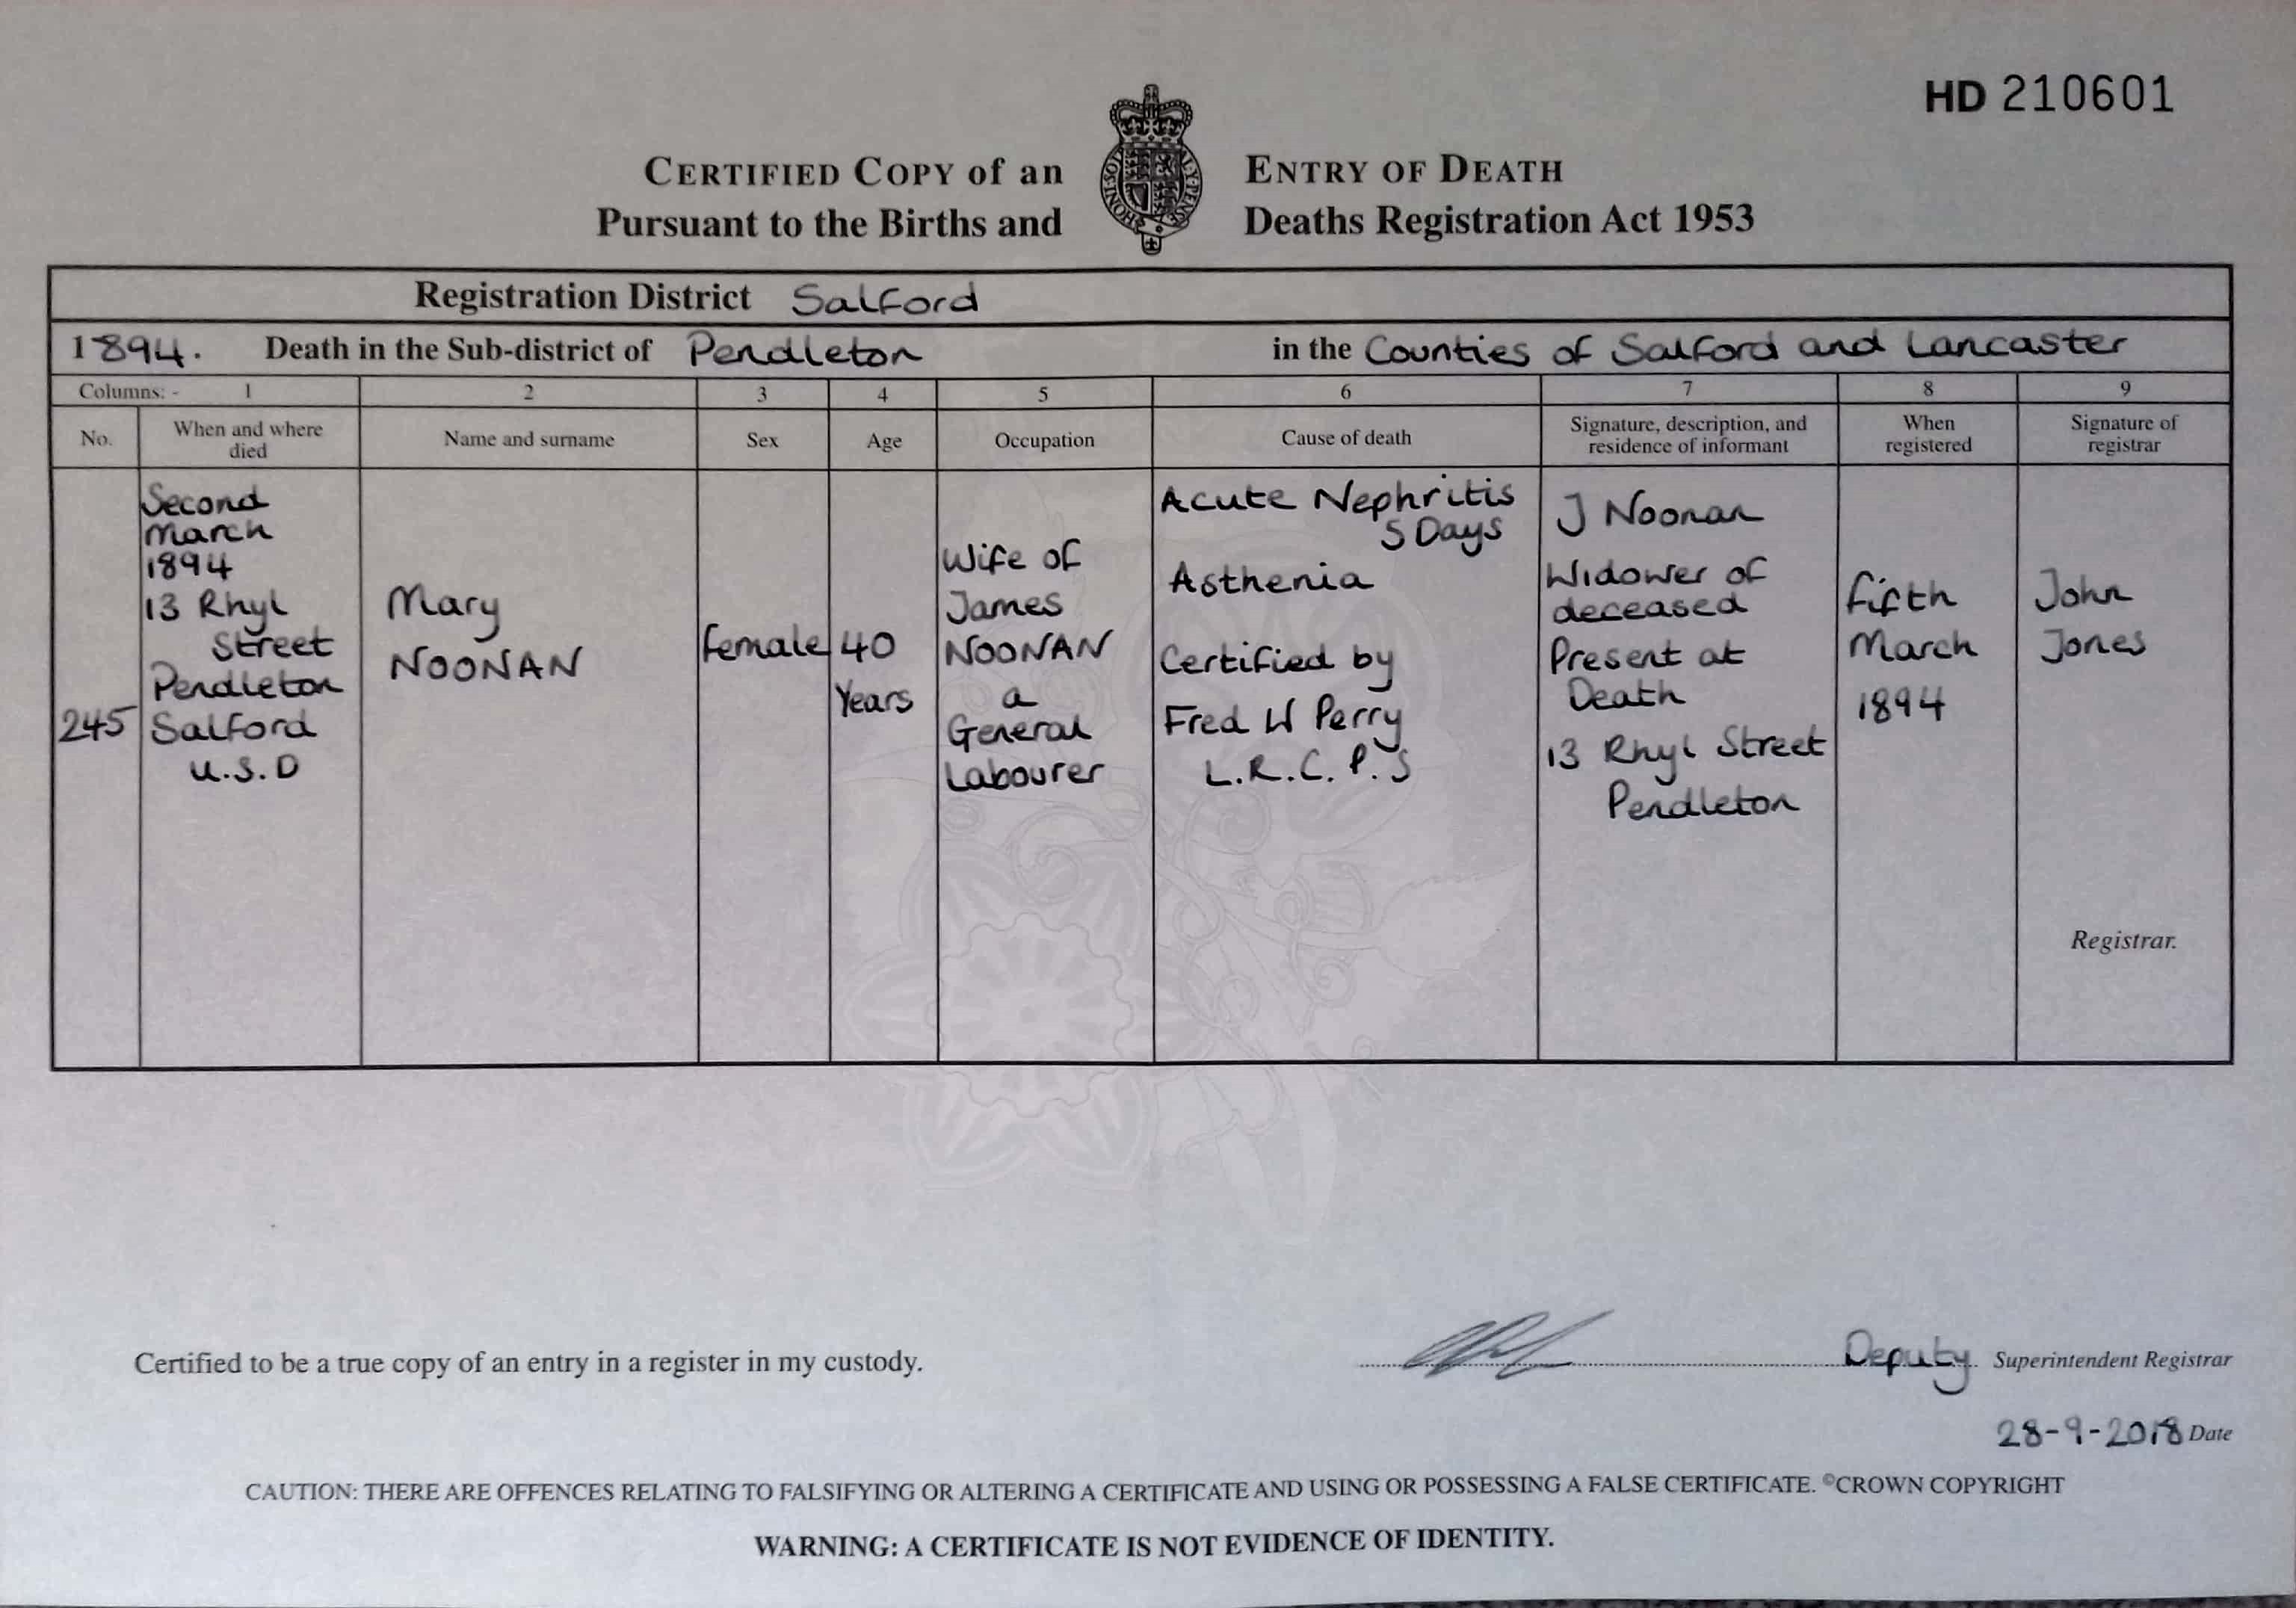 HD 210601
CERTIFIED COPY of an ENTRY OF DEATH
Pursuant to the Births and Deaths Registration Act 1953
HONI·SOIT
Registration District Salford
1894. Death in the Sub-district of Pendleton in the Counties of Salford and Lancaster
Columns:- 1 2 3 4 5 6 7 8 9
No.
When and where
died
Name and surname
Sex
Age
Occupation
Cause of death
Signature, description, and
residence of informant
When
registered
Signature of
registrar
245
Second
March
1894
13 Rhyl
Street
Pendleton
Salford
U.S.D
Mary
NOONAN
Female
40
Years
Wife of
James
NOONAN
a
General
Labourer
Acute Nephritis
5 Days
Asthenia
Certified by
Fred W Perry
L.R.C.P.S
J Noonan
Widower of
deceased
Present at
Death
13 Rhyl Street
Pendleton
Fifth
March
1894
John
Jones
Registrar.
Certified to be a true copy of an entry in a register in my custody.
Deputy Superintendent Registrar
28-9-2018 Date
CAUTION: THERE ARE OFFENCES RELATING TO FALSIFYING OR ALTERING A CERTIFICATE AND USING OR POSSESSING A FALSE CERTIFICATE. ©CROWN COPYRIGHT
WARNING: A CERTIFICATE IS NOT EVIDENCE OF IDENTITY.